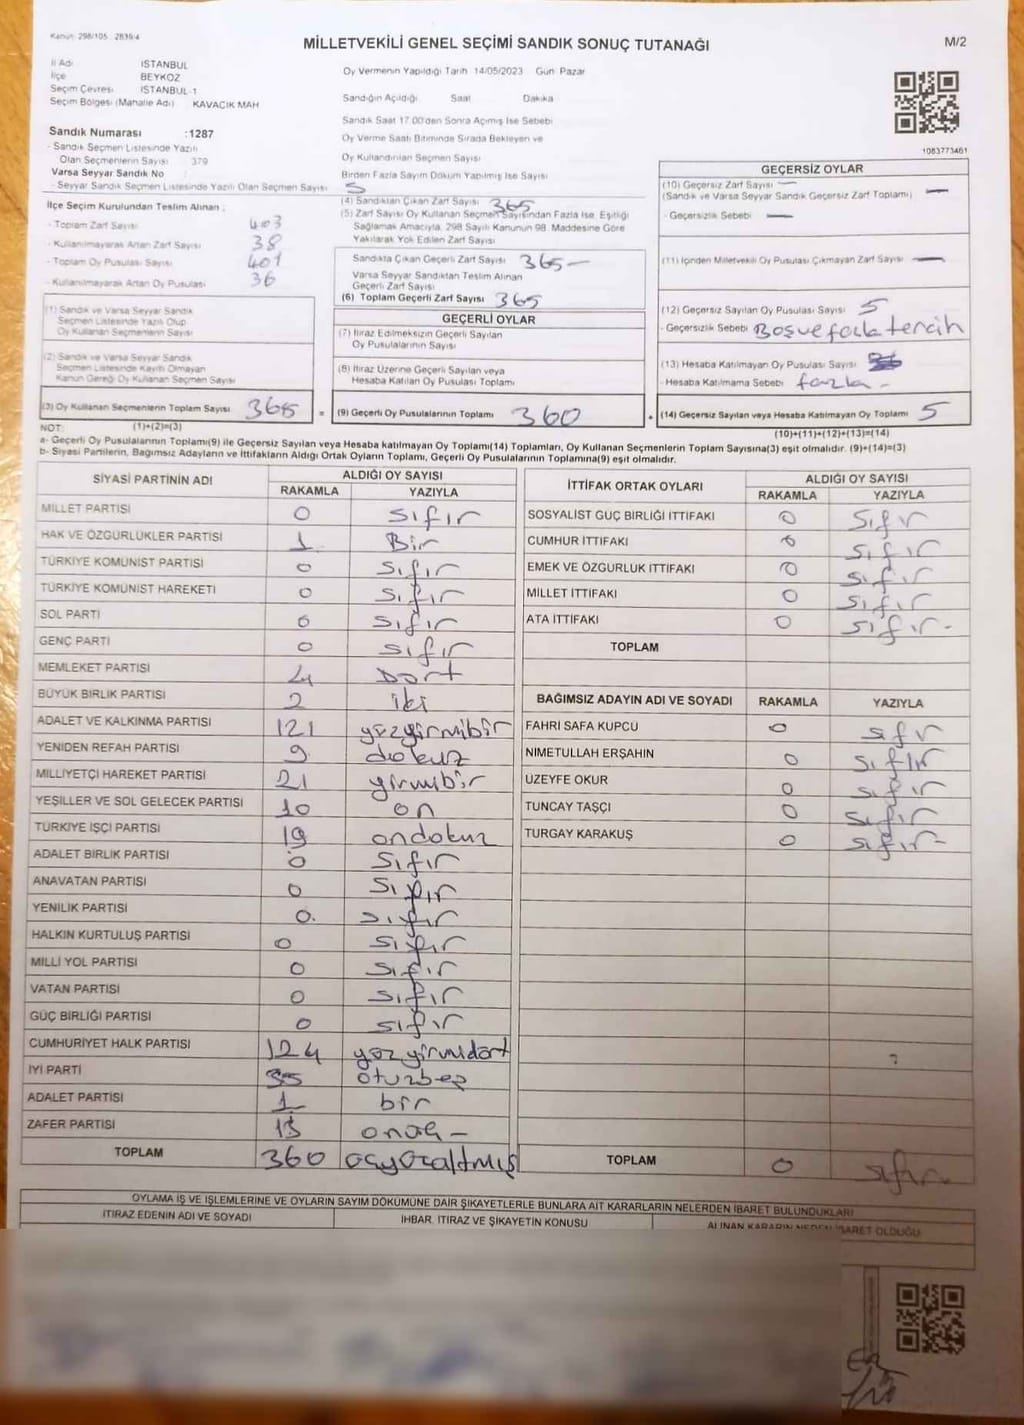 Kanun: 298/105 2839/4
MİLLETVEKİLİ GENEL SEÇİMİ SANDIK SONUÇ TUTANAĞI
M/2
İl Adı İSTANBUL
İlçe BEYKOZ
Seçim Çevresi İSTANBUL-1
Seçim Bölgesi (Mahalle Adı) KAVACIK MAH
Oy Vermenin Yapıldığı Tarih 14/05/2023 Gün Pazar
Sandığın Açıldığı Saat Dakika
Sandık Saat 17.00'den Sonra Açılmış İse Sebebi
Oy Verme Saati Bitiminde Sırada Bekleyen ve
Oy Kullandırılan Seçmen Sayısı
Birden Fazla Sayım Döküm Yapılmış İse Sayısı
1083773461
Sandık Numarası :1287
- Sandık Seçmen Listesinde Yazılı
Olan Seçmenlerin Sayısı 379
Varsa Seyyar Sandık No
- Seyyar Sandık Seçmen Listesinde Yazılı Olan Seçmen Sayısı 5
İlçe Seçim Kurulundan Teslim Alınan ;
- Toplam Zarf Sayısı 403
- Kullanılmayarak Artan Zarf Sayısı 38
- Toplam Oy Pusulası Sayısı 401
- Kullanılmayarak Artan Oy Pusulası 36
(1) Sandık ve Varsa Seyyar Sandık
Seçmen Listesinde Yazılı Olup
Oy Kullanan Seçmenlerin Sayısı
(2) Sandık ve Varsa Seyyar Sandık
Seçmen Listesinde Kayıtlı Olmayan
Kanun Gereği Oy Kullanan Seçmen Sayısı
(3) Oy Kullanan Seçmenlerin Toplam Sayısı 365 =
(4) Sandıktan Çıkan Zarf Sayısı 365
(5) Zarf Sayısı Oy Kullanan Seçmen Sayısından Fazla İse, Eşitliği
Sağlamak Amacıyla, 298 Sayılı Kanunun 98. Maddesine Göre
Yakılarak Yok Edilen Zarf Sayısı
Sandıkta Çıkan Geçerli Zarf Sayısı 365 -
Varsa Seyyar Sandıktan Teslim Alınan
Geçerli Zarf Sayısı
(6) Toplam Geçerli Zarf Sayısı 365
GEÇERLİ OYLAR
(7) İtiraz Edilmeksizin Geçerli Sayılan
Oy Pusulalarının Sayısı
(8) İtiraz Üzerine Geçerli Sayılan veya
Hesaba Katılan Oy Pusulası Toplamı
(9) Geçerli Oy Pusulalarının Toplamı 360 +
GEÇERSİZ OYLAR
(10) Geçersiz Zarf Sayısı -
(Sandık ve Varsa Seyyar Sandık Geçersiz Zarf Toplamı) -
- Geçersizlik Sebebi -
(11) İçinden Milletvekili Oy Pusulası Çıkmayan Zarf Sayısı -
(12) Geçersiz Sayılan Oy Pusulası Sayısı 5
- Geçersizlik Sebebi Boş ve fazla tercih
(13) Hesaba Katılmayan Oy Pusulası Sayısı
- Hesaba Katılmama Sebebi fazla -
(14) Geçersiz Sayılan veya Hesaba Katılmayan Oy Toplamı 5
NOT: (1)+(2)=(3)
(10)+(11)+(12)+(13)=(14)
a- Geçerli Oy Pusulalarının Toplamı(9) ile Geçersiz Sayılan veya Hesaba katılmayan Oy Toplamı(14) Toplamları, Oy Kullanan Seçmenlerin Toplam Sayısına(3) eşit olmalıdır. (9)+(14)=(3)
b- Siyasi Partilerin, Bağımsız Adayların ve İttifakların Aldığı Ortak Oyların Toplamı, Geçerli Oy Pusulalarının Toplamına(9) eşit olmalıdır.
SİYASİ PARTİNİN ADI ALDIĞI OY SAYISI
RAKAMLA YAZIYLA
MİLLET PARTİSİ 0 sıfır
HAK VE ÖZGÜRLÜKLER PARTİSİ 1 Bir
TÜRKİYE KOMÜNİST PARTİSİ 0 sıfır
TÜRKİYE KOMÜNİST HAREKETİ 0 sıfır
SOL PARTİ 0 sıfır
GENÇ PARTİ 0 sıfır
MEMLEKET PARTİSİ 4 Dört
BÜYÜK BİRLİK PARTİSİ 2 iki
ADALET VE KALKINMA PARTİSİ 121 yüzyirmibir
YENİDEN REFAH PARTİSİ 9 dokuz
MİLLİYETÇİ HAREKET PARTİSİ 21 yirmibir
YEŞİLLER VE SOL GELECEK PARTİSİ 10 on
TÜRKİYE İŞÇİ PARTİSİ 19 ondokuz
ADALET BİRLİK PARTİSİ 0 sıfır
ANAVATAN PARTİSİ 0 sıfır
YENİLİK PARTİSİ 0 sıfır
HALKIN KURTULUŞ PARTİSİ 0 sıfır
MİLLİ YOL PARTİSİ 0 sıfır
VATAN PARTİSİ 0 sıfır
GÜÇ BİRLİĞİ PARTİSİ 0 sıfır
CUMHURİYET HALK PARTİSİ 124 yüzyirmidört
İYİ PARTİ 35 otuzbeş
ADALET PARTİSİ 1 bir
ZAFER PARTİSİ 13 onüç -
TOPLAM 360 üçyüzaltmış
İTTİFAK ORTAK OYLARI ALDIĞI OY SAYISI
RAKAMLA YAZIYLA
SOSYALİST GÜÇ BİRLİĞİ İTTİFAKI 0 sıfır
CUMHUR İTTİFAKI 0 sıfır
EMEK VE ÖZGÜRLÜK İTTİFAKI 0 sıfır
MİLLET İTTİFAKI 0 sıfır
ATA İTTİFAKI 0 sıfır -
TOPLAM
BAĞIMSIZ ADAYIN ADI VE SOYADI RAKAMLA YAZIYLA
FAHRİ SAFA KUPCU 0 sıfır
NİMETULLAH ERŞAHİN 0 sıfır
UZEYFE OKUR 0 sıfır
TUNCAY TAŞÇI 0 sıfır
TURGAY KARAKUŞ 0 sıfır -
TOPLAM 0 sıfır
OYLAMA İŞ VE İŞLEMLERİNE VE OYLARIN SAYIM DÖKÜMÜNE DAİR ŞİKAYETLERLE BUNLARA AİT KARARLARIN NELERDEN İBARET BULUNDUKLARI
İTİRAZ EDENİN ADI VE SOYADI İHBAR, İTİRAZ VE ŞİKAYETİN KONUSU ALINAN KARARIN NEDEN İBARET OLDUĞU